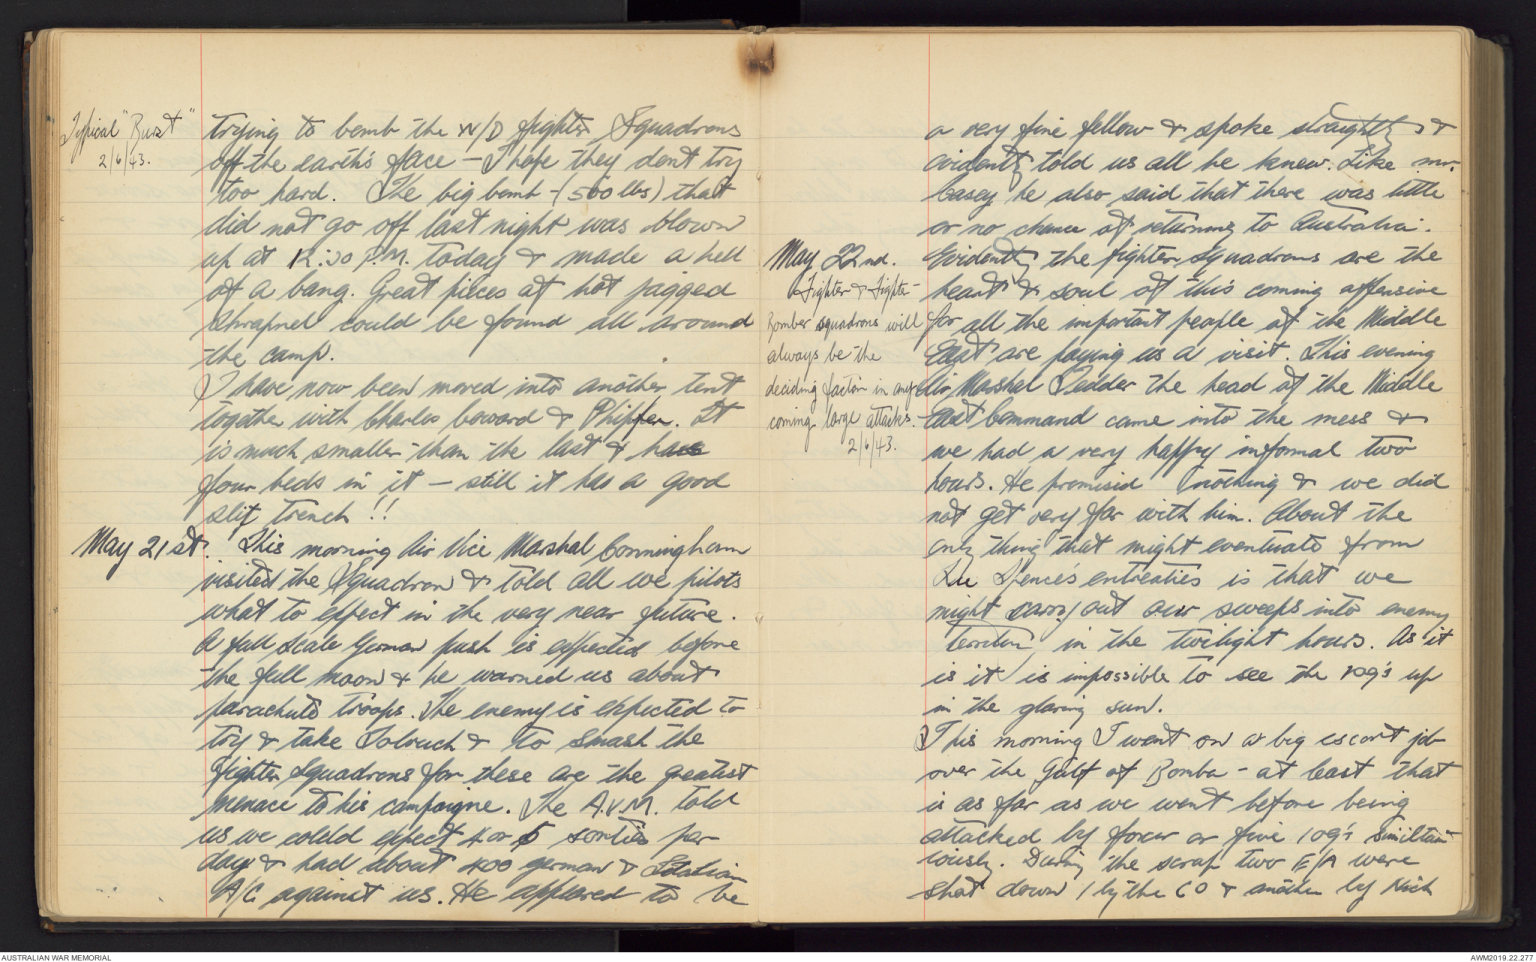 Typical "Burst"
2/6/43.
trying to bomb the W/D fighter Squadrons
off the earth's face – I hope they dont try
too hard. The big bomb – (500 lbs) that
did not go off last night was blown
up at 12.30 P.M. today & made a hell
of a bang. Great pieces of hot jagged
shrapnel could be found all around
the camp.
I have now been moved into another tent
together with Charles Coward &
It
is much smaller than the last & has
four beds in it – still it has a good
slit trench !!
May 21st. This morning Air Vice Marshal Conningham
visited the Squadron & told all we pilots
what to expect in the very near future.
A full scale German push is expected before
the full moon & he warned us about
parachute troops. The enemy is expected to
try & take Tobruch & to smash the
fighter Squadrons for these are the greatest
menace to his campaigne. The A.V.M. told
us we could expect 4 or 5 sorties per
day & had about 400 german & Italian
A/C against us. He appeared to be
a very fine fellow & spoke straightly &
evidently told us all he knew. Like mr.
Casey he also said that there was little
or no chance of returning to Australia.
May 22nd.
Fighter & Fighter
Bomber squadrons will
always be the
deciding factor in any
coming large attacks.
2/6/43.
Evidently the fighter squadrons are the
heart & soul of this coming offensive
for all the important people of the Middle
East are paying us a visit. This evening
Air Marshal Tedder the head of the Middle
East Command came into the mess &
we had a very happy informal two
hours. He promised nothing & we did
not get very far with him. About the
only thing that might eventuate from
Lu Spence's entreaties is that we
might carry out our sweeps into enemy
territory in the twilight hours. As it
is it is impossible to see the 109's up
in the glaring sun.
This morning I went on a big escort job
over the Gulf of Bomba – at least that
is as far as we went before being
attacked by four or five 109's similtan-
iously. During the scrap two E/A were
shot down 1 by the CO & another by Nick
AUSTRALIAN WAR MEMORIAL
AWM2019.22.277